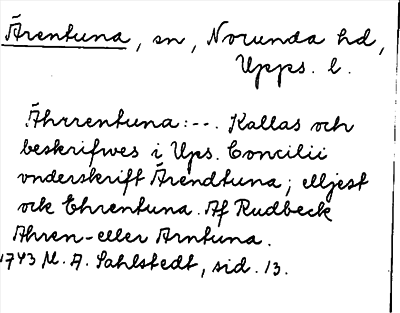 Ärentuna, sn, Norunda hd,
Upps. l.
Ährrentuna: --. Kallas och
beskrifwes i Ups. Concilii
vnderskrift Ärendtuna; Mjest
ock Ehrentuna. Af Rudbeck
Ahren- eller Arntuna.
1743 M. A. Sahlstedt, sid. 13.